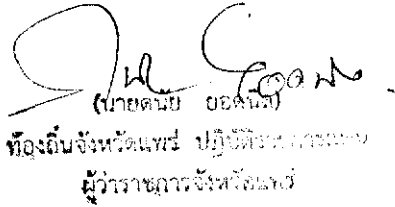 (นายดนัย
ท้องถิ่นจังหวัดแพร่ ปฏิบัติราชการแทน
ผู้ว่าราชการจังหวัดแพร่